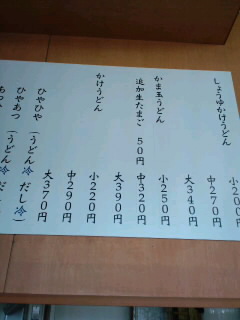 しょうゆかけうどん
小200
中270円
大340円
かま玉うどん
小250円
追加生たまご 50円
中320円
大390円
かけうどん
小220円
中290円
大370円
ひやひや (うどん冷 だし冷)
ひやあつ (うどん冷 だし